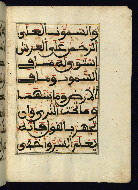 والسموت العلى
الرحمن على العرش
استوى له ما في
السموت وما في
الارض وما بينهما
وما تحت الثرى وان
تجهر بالقول فانه
يعلم السر واخفى